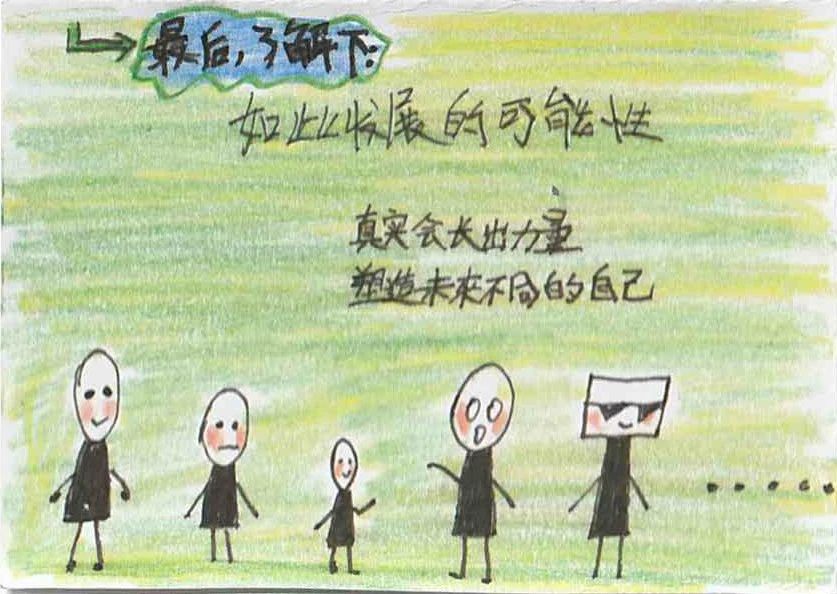 最后，了解下：
如此发展的可能性
真实会长出力量
塑造未來不同的自己